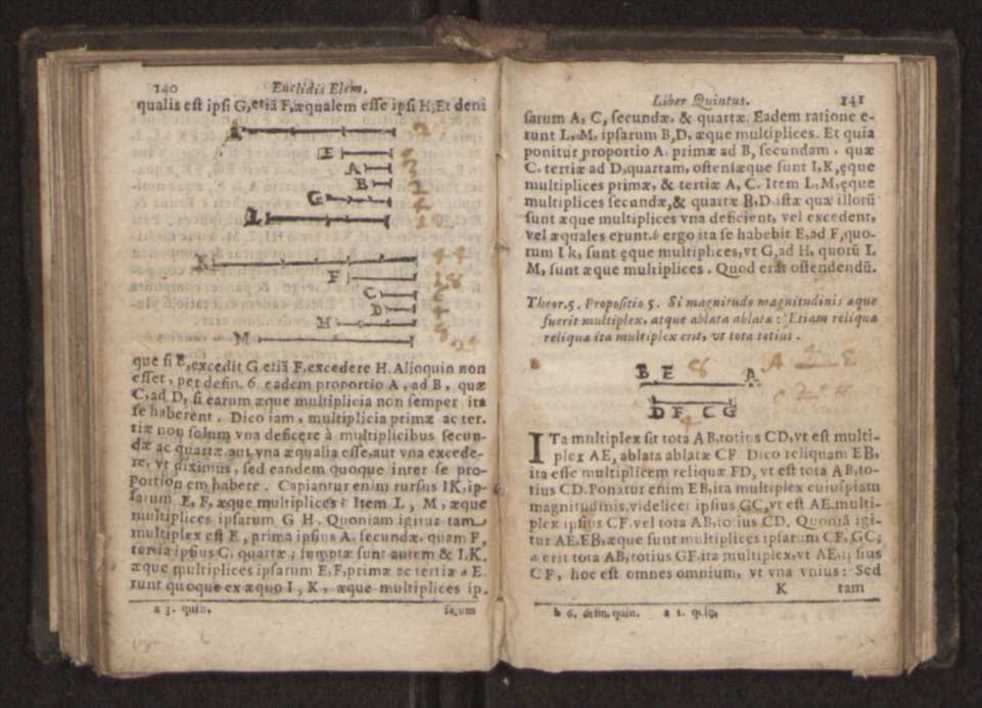 140 Euclidis Elem.
qualis est ipsi G, etiā F, æqualem esse ipsi H; Et deni
I
E
A
B
G
L
K
F
C
D
H
M
que si E, excedit G etiā F, excedere H. Alioquin non
esset, per defin. 6 eadem proportio A, ad B, quæ
C, ad D, si earum æque multiplicia non semper ita
se haberent. Dico iam, multiplicia primæ ac ter.
tiæ non solum vna deficere à multiplicibus secun-
dæ ac quartæ aut vna æqualia esse, aut vna excede-
re, vt diximus, sed eandem quoque inter se pro-
portionem habere. Capiantur enim rursus IK, ip-
sarum E, F, æque multiplices: Item L, M, æque
multiplices ipsarum G H. Quoniam igitur tam
multiplex est E, prima ipsius A. secundæ. quam F,
tertia ipsius C. quartæ; sumptæ sunt autem & I, K.
æque multiplices ipsarum E, F, primæ ac tertiæ a E.
runt quoque ex æquo I, K, æque multiplices ip.
a 3. quin. sarum
Liber Quintus. 141
sarum A, C, secundæ. & quartæ. Eadem ratione e-
runt L, M, ipsarum B, D, æque multiplices. Et quia
ponitur proportio A. primæ ad B, secundam. quæ
C. tertiæ ad D, quartam, ostensæque sunt I, K, ęque
multiplices primæ, & tertiæ A, C. Item L, M, ęque
multiplices secundæ, & quartæ B, D istæ quæ illorū
sunt æque multiplices vna deficient, vel excedent,
vel æquales erunt. b ergo ita se habebit E, ad F, quo-
rum I k, sunt ęque multiplices, vt G, ad H, quorū L
M, sunt æque multiplices. Quod erat ostendendū.
Theor. 5. Propositio 5. Si magnitudo magnitudinis æque
fuerit multiplex, atque ablata ablatæ: Etiam reliqua
reliquæ ita multiplex erit, vt tota totius.
B E 8 A
D F C G
4
ITa multiplex sit tota A B, totius CD, vt est multi-
plex AE, ablata ablatæ CF Dico reliquam EB,
ita esse multiplicem reliquæ FD, vt est tota A B, to-
tius CD. Ponatur enim EB, ita multiplex cuiuspiam
magnitudinis, videlicet ipsius GC, vt est AE. multi-
plex ipsius CF. vel tota AB, totius CD. Quoniā igi-
tur AE, EB, æque sunt multiplices ipsarum CF, GC;
a erit tota AB, totius GF. ita multiplex, vt AE, ipsius
CF, hoc est omnes omnium, vt vna vnius: Sed
K tam
b 6. defin. quin. a 1. quin.